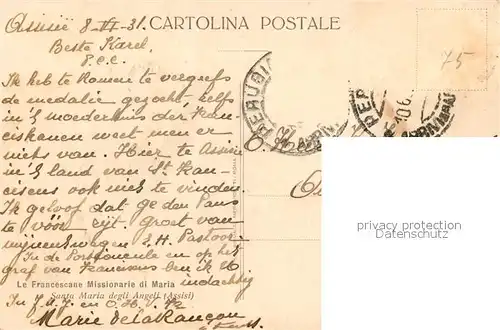 Assisië 8-VI-31.
CARTOLINA POSTALE
75
Beste Karel,
P.e.e.
Ik heb te Romen te vergeefs
de medalie gezocht, zelfs
in 's moederhuis der Fran-
ciskanen weet men er
niets van. Hier te Assisi
in 't land van St. Fran-
ciscus ook niets te vinden.
Ik geloof dat ge den Paus
te vóór zijt. Groet van
mijnentwegen E.H. Pastoor.
In de Portioncule en op het
graf van Franciscus ben ik U
indachtig
Le Francescane Missionarie di Maria
Santa Maria degli Angeli (Assisi)
In
Marie de la Rançon
PERUGIA
ARRIVI
PER
ARRIVI
privacy protection
www.oldthing.de